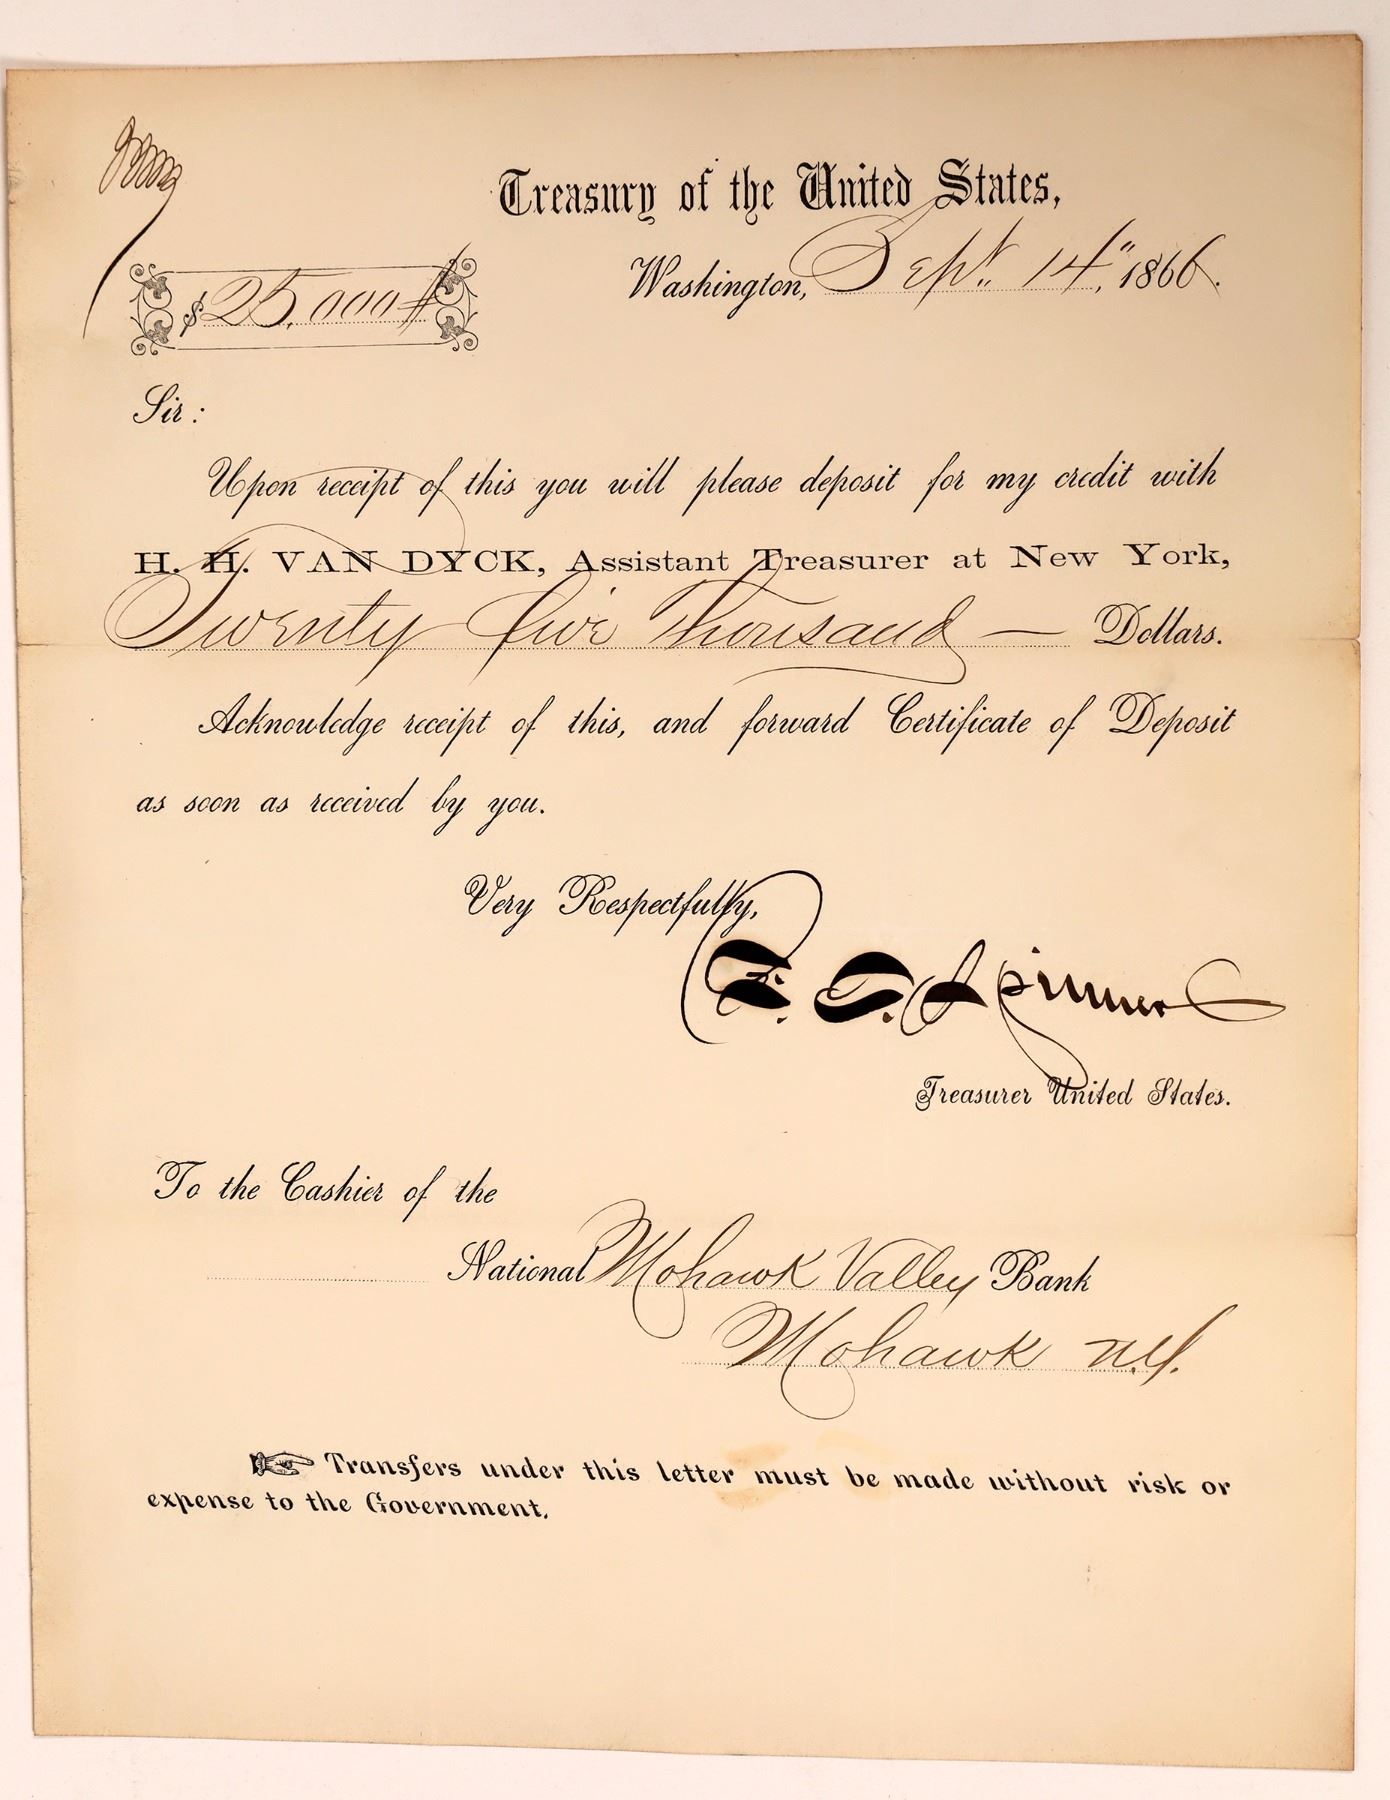 Treasury of the United States,
Washington, Sept. 14", 1866.
$25,000
Sir:
Upon receipt of this you will please deposit for my credit with
H. H. VAN DYCK, Assistant Treasurer at New York,
Twenty five Thousand — Dollars.
Acknowledge receipt of this, and forward Certificate of Deposit
as soon as received by you.
Very Respectfully,
F. E. Spinner
Treasurer United States.
To the Cashier of the
National Mohawk Valley Bank
Mohawk N.Y.
☞ Transfers under this letter must be made without risk or
expense to the Government.